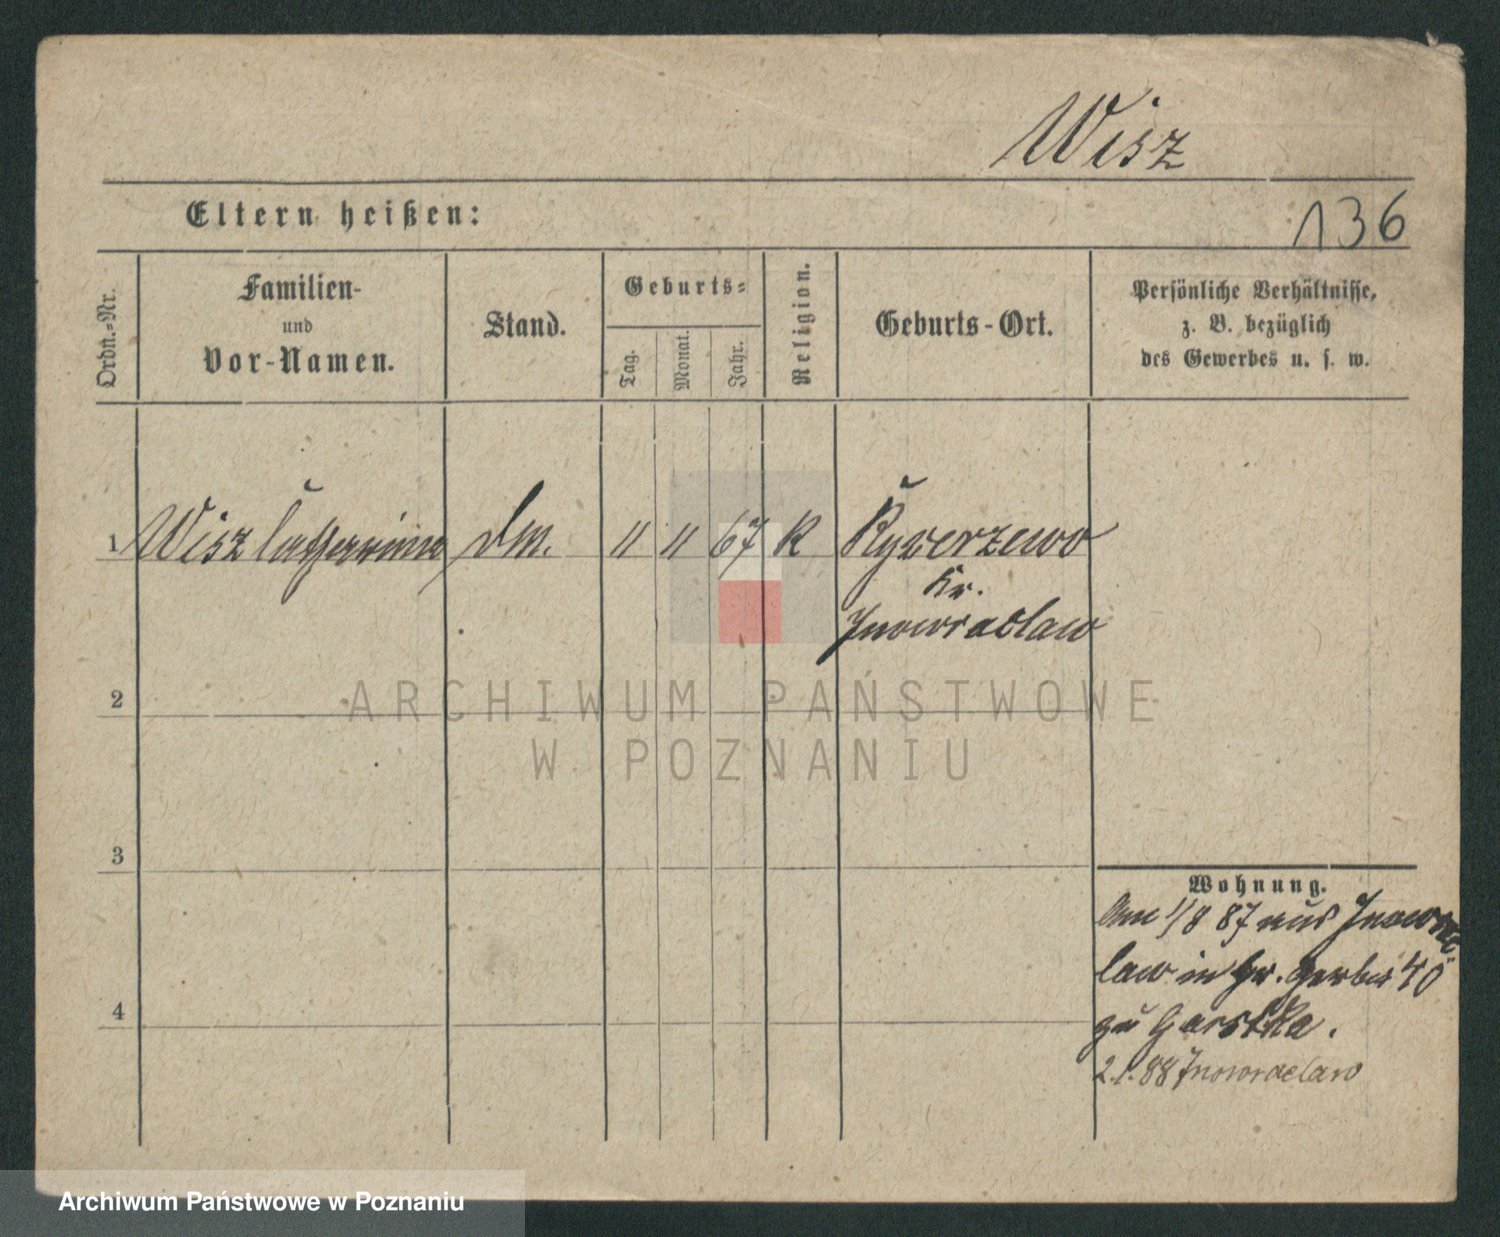 Wisz
Eltern heißen:
136
Ordn.=Nr.
Familien-
und
Vor-Namen.
Stand.
Geburts=
Tag.
Monat.
Jahr.
Religion.
Geburts-Ort.
Persönliche Verhältnisse,
z. B. bezüglich
des Gewerbes u. s. w.
1 Wisz Catherina dm. 11 11 67 K
Kr.
Inowraclaw
2
3
4
Wohnung.
Am 1/8 87 aus Inowrac-
law in Gr. Gerber 40
zu Garstka.
2.1.88 Inowraclaw
ARCHIWUM PAŃSTWOWE
W POZNANIU
Archiwum Państwowe w Poznaniu